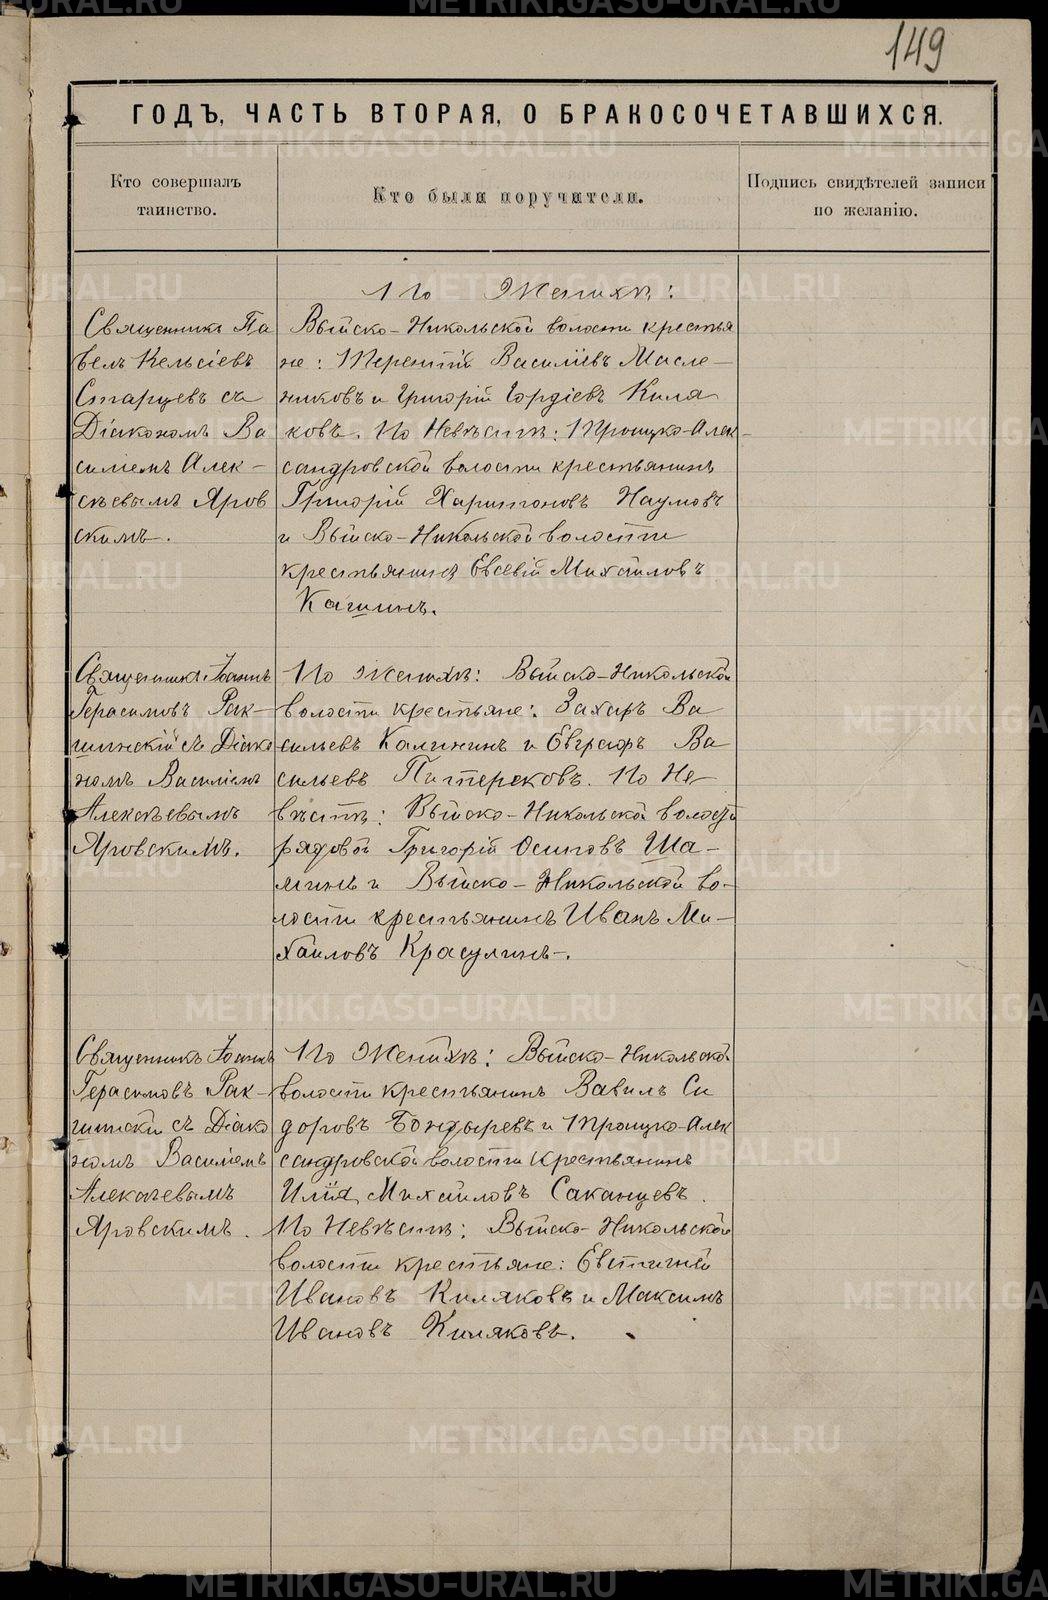 149
ГОДЪ, ЧАСТЬ ВТОРАЯ, О БРАКОСОЧЕТАВШИХСЯ.
Кто совершалъ
таинство.
Кто были поручители.
Подпись свидѣтелей записи
по желанію.
По Женихѣ:
Священникъ Па
велъ Кельсіевъ
Старцевъ съ
Діакономъ Ва
силіемъ Алек-
сѣевымъ Яров
скимъ.
Выйско-Никольской волости крестья
не: Терентій Василіевъ Масле-
никовъ и Григорій Гордіевъ Киля
ковъ. По Невѣстѣ: Троицко-Алек-
сандровской волости крестьянинъ
Григорій Харитоновъ Наумовъ
и Выйско-Никольской волости
крестьянинъ Евсевій Михайловъ
Кашинъ.
Священникъ Іоаннъ
Герасимовъ Рак-
шинскій съ Діако
номъ Василіемъ
Алексѣевымъ
Яровскимъ.
По Женихѣ: Выйско-Никольской
волости крестьяне: Захаръ Ва
сильевъ Калининъ и Евграфъ Ва
сильевъ Патерековъ. По Не
вѣстѣ: Выйско-Никольской волости
рядовой Григорій Осиповъ Ша-
минъ и Выйско-Никольской во-
лости крестьянинъ Иванъ Ми-
хайловъ Красулинъ.
Священникъ Іоаннъ
Герасимовъ Рак-
шинскій съ Діако
номъ Василіемъ
Алексѣевымъ
Яровскимъ.
По Женихѣ: Выйско-Никольской
волости крестьянинъ Вавилъ Си
доровъ Бондыревъ и Троицко-Алек
сандровской волости крестьянинъ
Илія Михайловъ Саканцевъ.
По Невѣстѣ: Выйско-Никольской
волости крестьяне: Евтигней
Ивановъ Киляковъ и Максимъ
Ивановъ Киляковъ.
METRIKI.GASO-URAL.RU